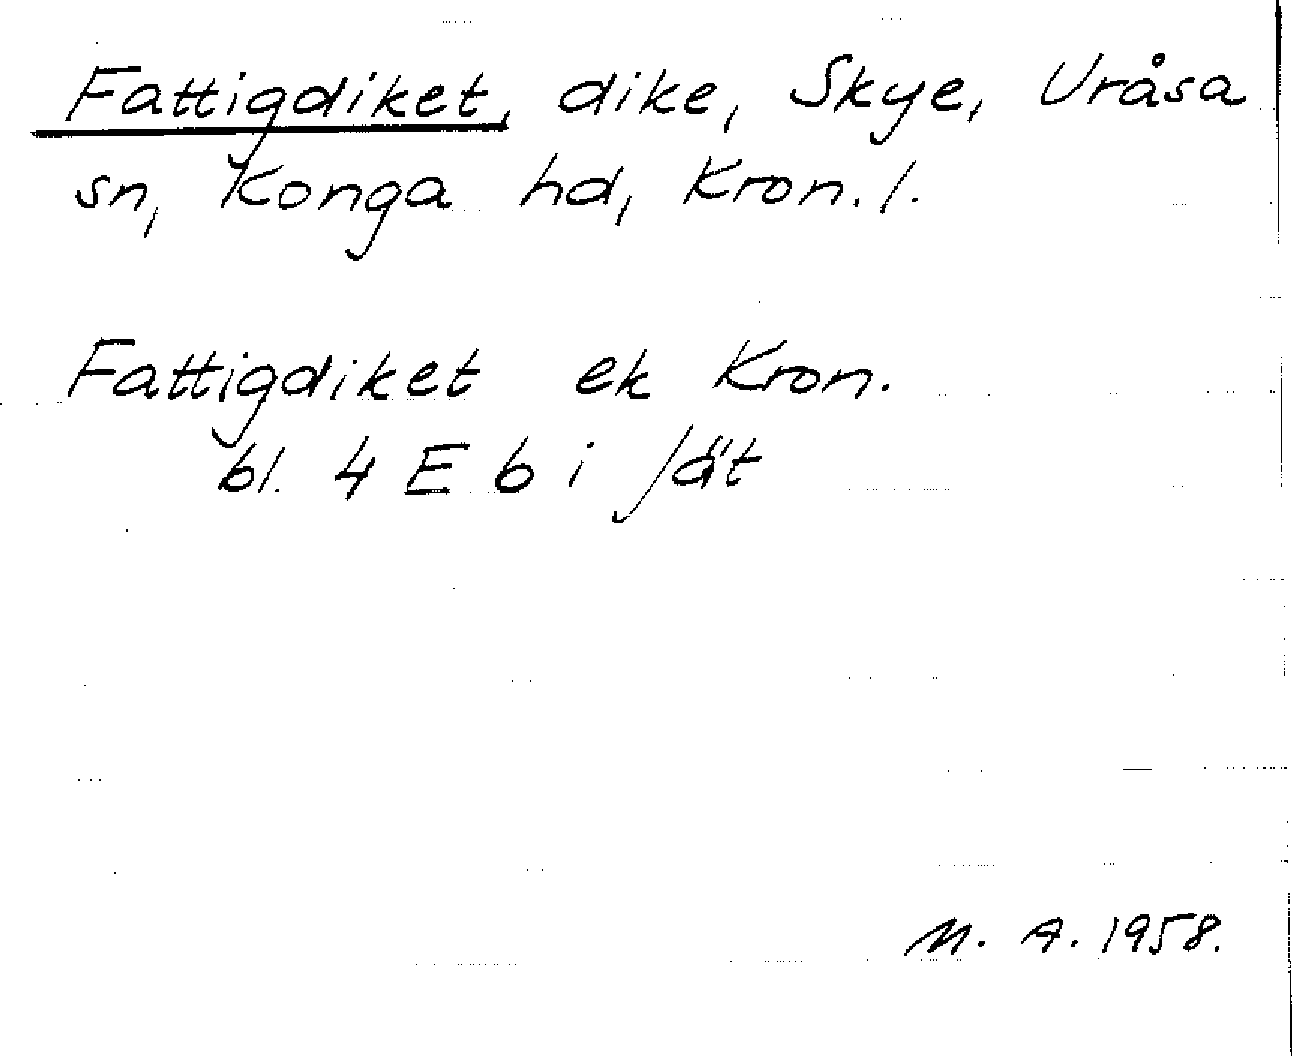 Fattigdiket, dike, Skye, Uråsa
sn, Konga hd, Kron. l.
Fattigdiket ek Kron.
bl. 4 E b i /ät
M. A. 1958.